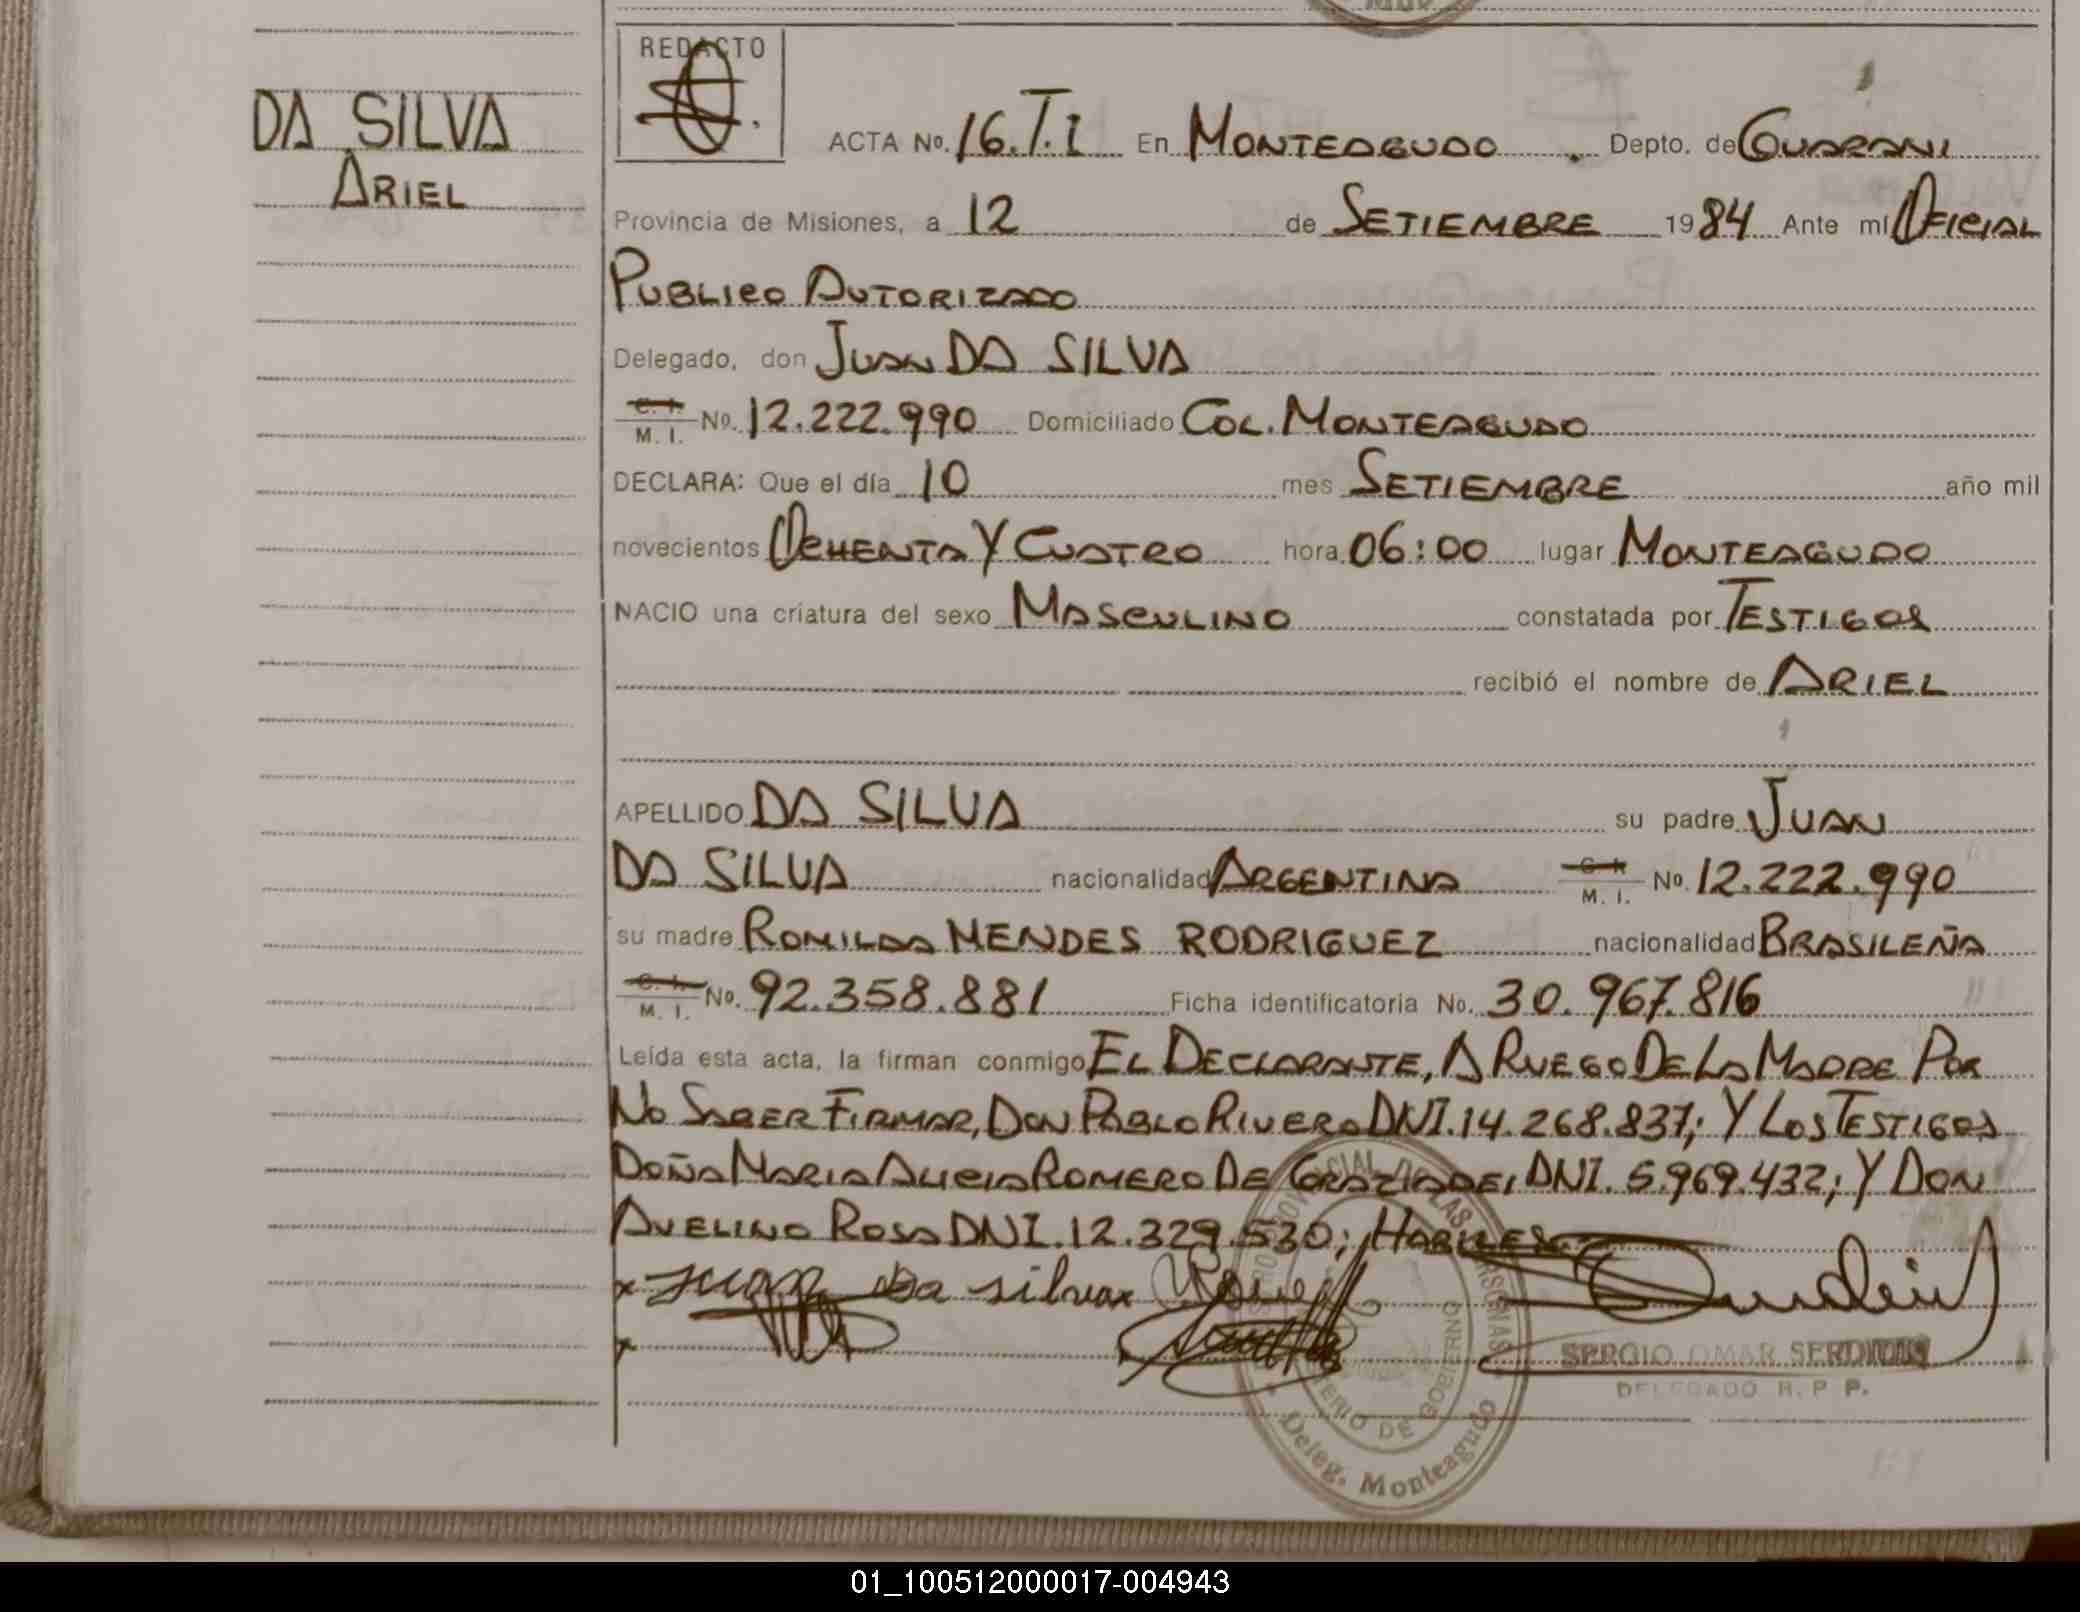 DA SILVA
ARIEL
REDACTO
ACTA No. 16.T.I En MONTEAGUDO. Depto. de GUARANI
Provincia de Misiones, a 12 de SETIEMBRE 1984 Ante mí OFICIAL
PUBLICO AUTORIZADO
Delegado, don JUAN DA SILVA
C. I. M. I. No. 12.222.990 Domiciliado COL. MONTEAGUDO
DECLARA: Que el día 10 mes SETIEMBRE año mil
novecientos OCHENTA Y CUATRO hora 06:00 lugar MONTEAGUDO
NACIO una criatura del sexo MASCULINO constatada por TESTIGOS
recibió el nombre de ARIEL
APELLIDO DA SILVA su padre JUAN
DA SILVA nacionalidad ARGENTINA C. I. M. I. No. 12.222.990
su madre ROMILDA MENDES RODRIGUEZ nacionalidad BRASILEÑA
C. I. M. I. No. 92.358.881 Ficha identificatoria No. 30.967.816
Leída esta acta, la firman conmigo EL DECLARANTE, A RUEGO DE LA MADRE POR
NO SABER FIRMAR, DON PABLO RIVERO DNI. 14.268.837; Y LOS TESTIGOS
DOÑA MARIA ALICIA ROMERO DE GRAZIADEI DNI. 5.969.432; Y DON
AVELINO ROSA DNI. 12.329.530; HABILES.
x Juan da silva x
x
SERGIO OMAR
DELEGADO R. P. P.
DE LAS PERSONAS
MINISTERIO DE GOBIERNO
Deleg. Monteagudo
01_100512000017-004943